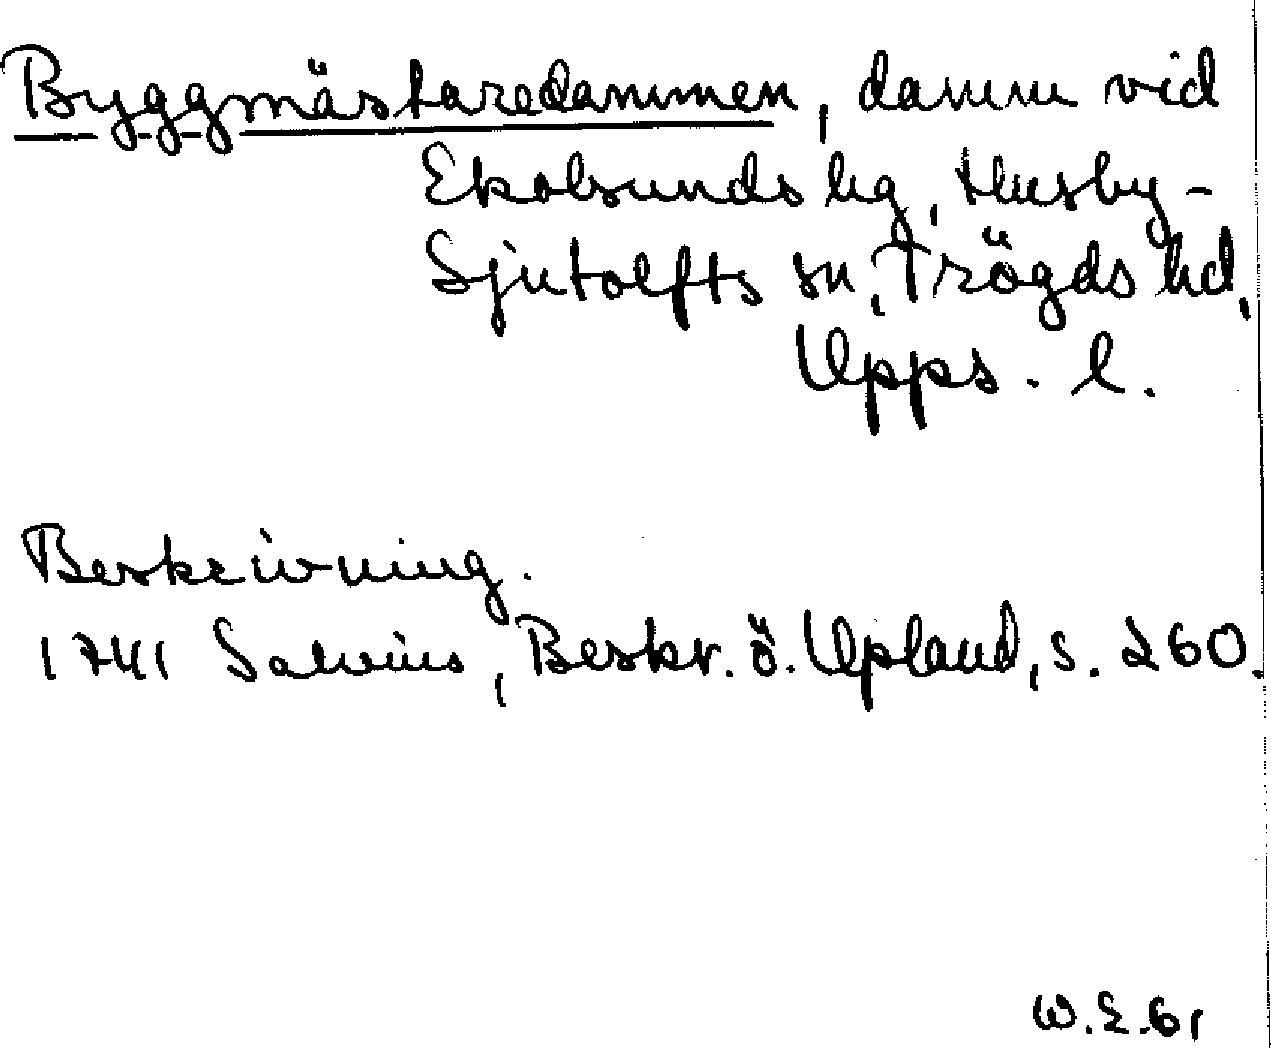 Byggmästaredammen, damm vid
Ekolsunds hg, Husby-
Sjutolfts sn, Trögds hd,
Upps. l.
Beskrivning.
1741 Salvius, Beskr. ö. Upland, s. 260.
W.E. 61